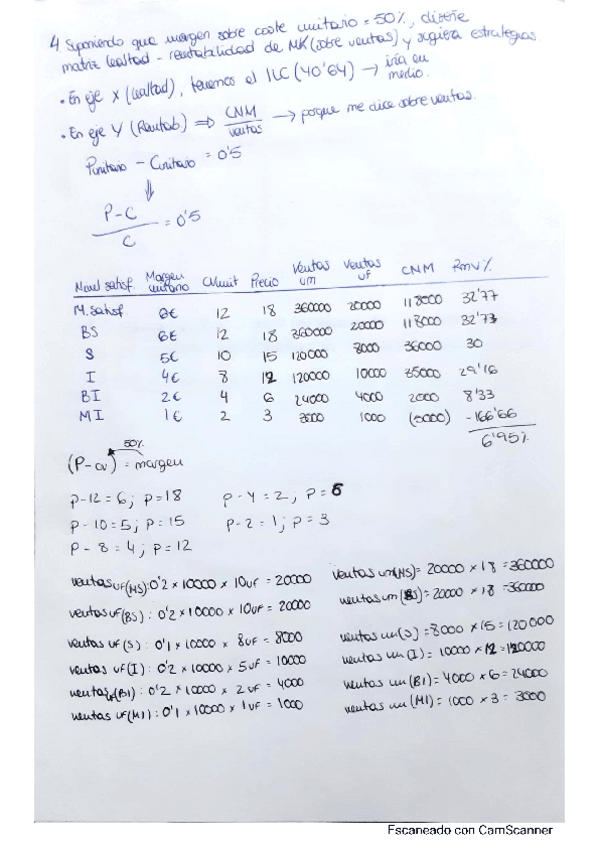 4 Suponiendo que margen sobre coste unitario = 50%, diseñe
matriz lealtad - rentabilidad de MK (sobre ventas) y sugiera estrategias
• En eje X (lealtad), tenemos el ILC (40'64) → iría en
medio.
• En eje Y (Rentab) ⇒ CNM / ventas → porque me dice sobre ventas.
Punitario - Cunitario = 0'5
⇓
P-C / C = 0'5
Nivel satisf Margen unitario CVunit Precio Ventas um Ventas uf CNM RMV%
M.satisf 6€ 12 18 360000 20000 118000 32'77
BS 6€ 12 18 360000 20000 118000 32'73
S 5€ 10 15 120000 8000 36000 30
I 4€ 8 12 120000 10000 35000 29'16
BI 2€ 4 6 24000 4000 2000 8'33
MI 1€ 2 3 3000 1000 (5000) -166'66
6'95%
50%
(P-cv) = margen
p-12=6; p=18 p-4=2, p=6
p-10=5; p=15 p-2=1; p=3
p-8=4; p=12
ventas uf(MS): 0'2 x 10000 x 10uf = 20000 ventas um(MS) = 20000 x 18 = 360000
ventas uf(BS): 0'2 x 10000 x 10uf = 20000 ventas um(BS) = 20000 x 18 = 360000
ventas uf(S): 0'1 x 10000 x 8uf = 8000 ventas um(S) = 8000 x 15 = 120000
ventas uf(I): 0'2 x 10000 x 5uf = 10000 ventas um(I) = 10000 x 12 = 120000
ventas uf(BI): 0'2 x 10000 x 2uf = 4000 ventas um(BI) = 4000 x 6 = 24000
ventas uf(MI): 0'1 x 10000 x 1uf = 1000 ventas um(MI) = 1000 x 3 = 3000
Escaneado con CamScanner